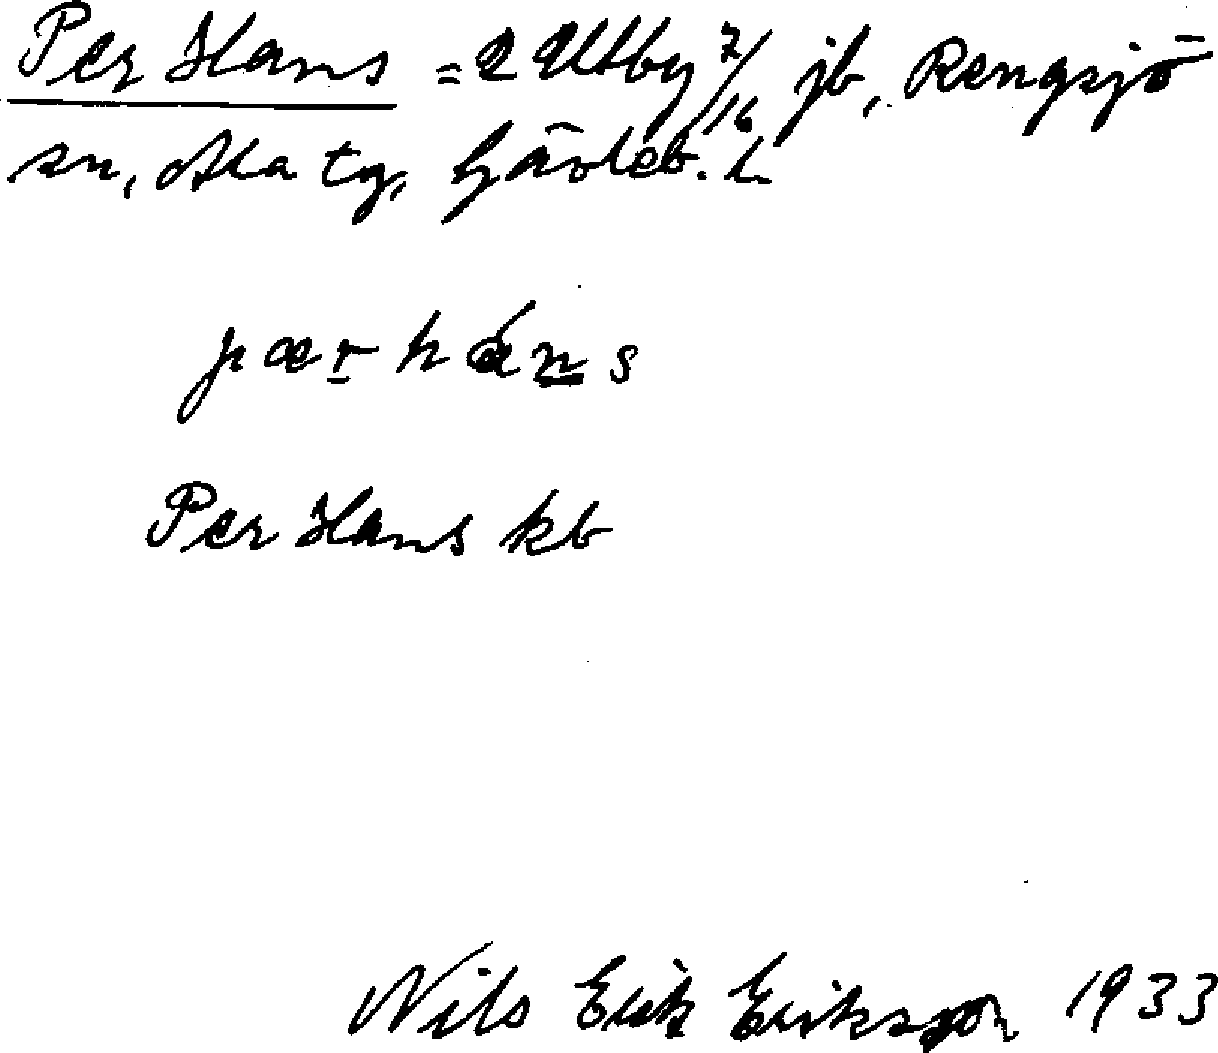 Per Hans = 2 Utby 7/16 jb, Rengsjö
sn, Ala tg, Gävleb. l.
pær háns
Per Hans kb
Nils Erik Eriksson 1933